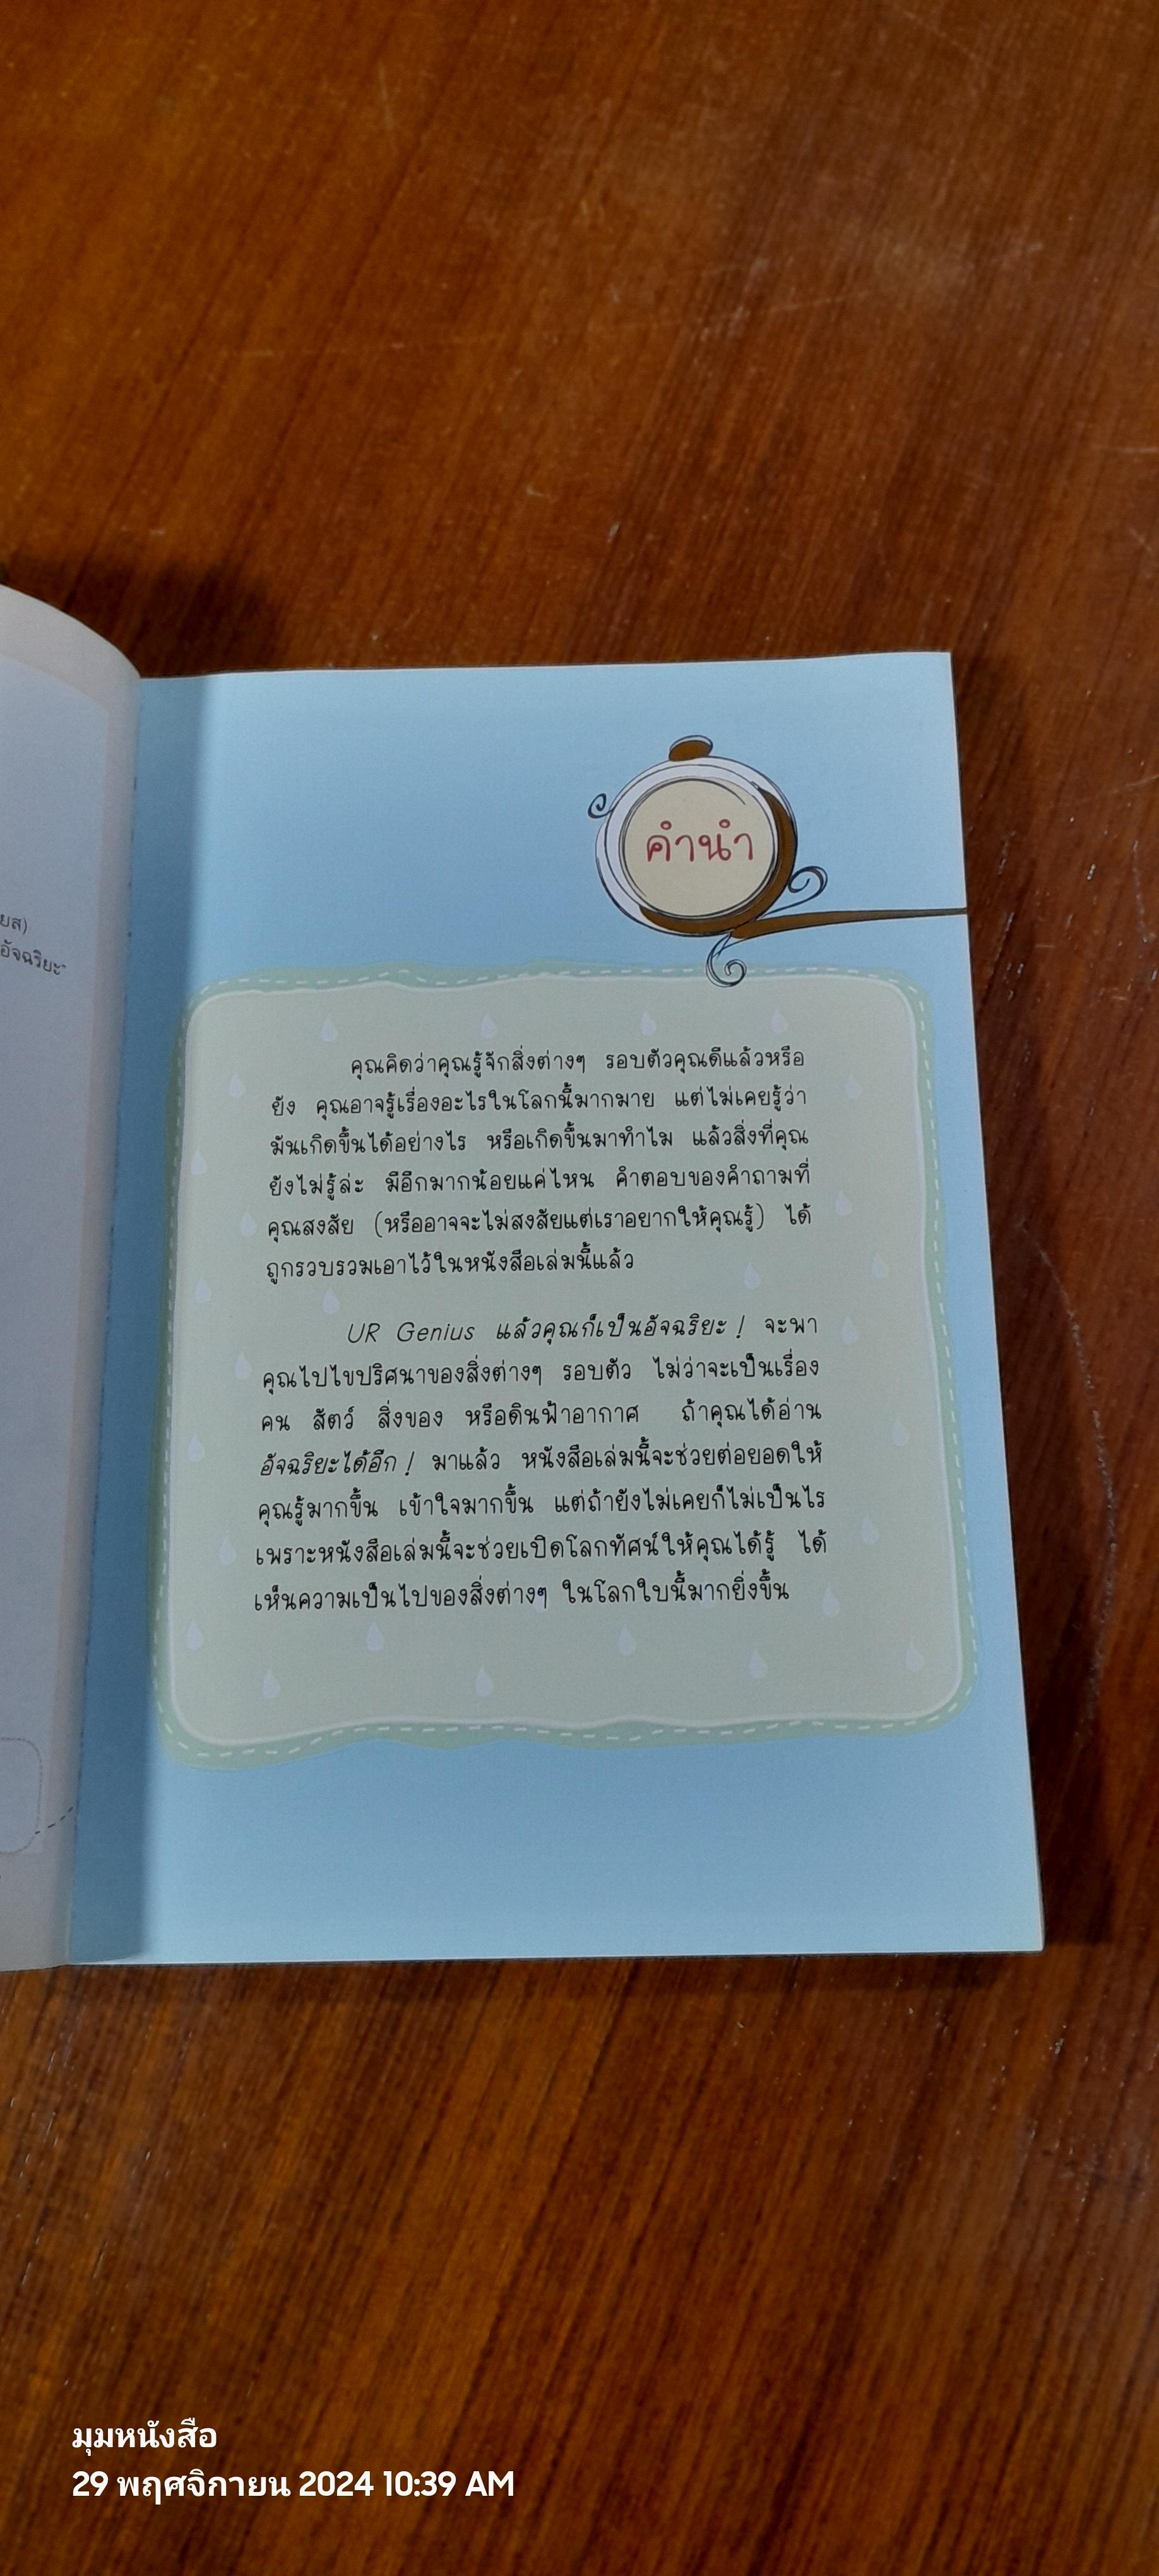 ยส)
อัจฉริยะ"
คำนำ
คุณคิดว่าคุณรู้จักสิ่งต่างๆ รอบตัวคุณดีแล้วหรือ
ยัง คุณอาจรู้เรื่องอะไรในโลกนี้มากมาย แต่ไม่เคยรู้ว่า
มันเกิดขึ้นได้อย่างไร หรือเกิดขึ้นมาทำไม แล้วสิ่งที่คุณ
ยังไม่รู้ล่ะ มีอีกมากน้อยแค่ไหน คำตอบของคำถามที่
คุณสงสัย (หรืออาจจะไม่สงสัยแต่เราอยากให้คุณรู้) ได้
ถูกรวบรวมเอาไว้ในหนังสือเล่มนี้แล้ว
UR Genius แล้วคุณก็เป็นอัจฉริยะ! จะพา
คุณไปไขปริศนาของสิ่งต่างๆ รอบตัว ไม่ว่าจะเป็นเรื่อง
คน สัตว์ สิ่งของ หรือดินฟ้าอากาศ ถ้าคุณได้อ่าน
อัจฉริยะได้อีก! มาแล้ว หนังสือเล่มนี้จะช่วยต่อยอดให้
คุณรู้มากขึ้น เข้าใจมากขึ้น แต่ถ้ายังไม่เคยก็ไม่เป็นไร
เพราะหนังสือเล่มนี้จะช่วยเปิดโลกทัศน์ให้คุณได้รู้ ได้
เห็นความเป็นไปของสิ่งต่างๆ ในโลกใบนี้มากยิ่งขึ้น
มุมหนังสือ
29 พฤศจิกายน 2024 10:39 AM